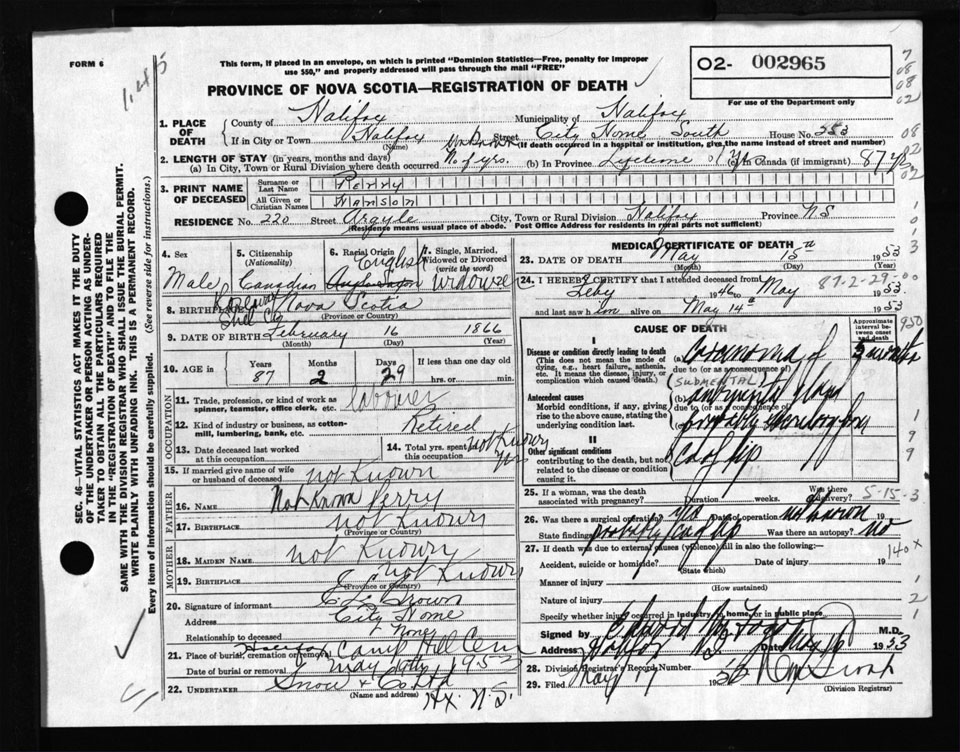 FORM 6
This form, if placed in an envelope, on which is printed "Dominion Statistics—Free, penalty for improper
use $50," and properly addressed will pass through the mail "FREE"
PROVINCE OF NOVA SCOTIA—REGISTRATION OF DEATH
02- 002965
For use of the Department only
1. PLACE OF DEATH
County of Halifax Municipality of Halifax
If in City or Town Halifax (Name) Street City Home South House No. 353
(If death occurred in a hospital or institution, give the name instead of street and number)
2. LENGTH OF STAY (in years, months and days)
(a) In City, Town or Rural Division where death occurred No. of yrs. (b) In Province Lifetime (c) In Canada (if immigrant) 87 yrs
3. PRINT NAME OF DECEASED
Surname or Last Name Perry
All Given or Christian Names Hanson
RESIDENCE No. 220 Street Argyle City, Town or Rural Division Halifax Province N.S
(Residence means usual place of abode. Post Office Address for residents in rural parts not sufficient)
4. Sex Male
5. Citizenship (Nationality) Canadian
6. Racial Origin English
7. Single, Married, Widowed or Divorced (write the word) Widower
8. BIRTHPLACE Shel Co Nova Scotia
(Province or Country)
9. DATE OF BIRTH February 16 1866
(Month) (Day) (Year)
10. AGE in Years 87 Months 2 Days 29 If less than one day
hrs. or min.
OCCUPATION
11. Trade, profession, or kind of work as
spinner, teamster, office clerk, etc. labourer
12. Kind of industry or business, as cotten-
mill, lumbering, bank, etc. Retired
13. Date deceased last worked
at this occupation
14. Total yrs. spent in
this occupation not Known
15. If married give name of wife
or husband of deceased not Known
FATHER
16. Name Not Known Perry
17. Birthplace not Known
(Province or Country)
MOTHER
18. MAIDEN NAME not Known
19. BIRTHPLACE not Known
(Province or Country)
20. Signature of informant Brown
Address City Home
Relationship to deceased None
21. Place of burial, cremation or removal Camp Hill Cem
Date of burial or removal May 1953
22. UNDERTAKER Snow & Co Ltd
(Name and address) Hx. N.S.
MEDICAL CERTIFICATE OF DEATH
23. DATE OF DEATH May 15th 1953
(Month) (Day) (Year)
24. I HEREBY CERTIFY that I attended deceased from
Feby 1946 to May 1953
87-2-29-00
and last saw him alive on May 14th 1953
CAUSE OF DEATH
Approximate interval between onset and death
I
Disease or condition directly leading to death
(This does not mean the mode of dying, e.g., heart failure, asthenia, etc. It means the disease, injury, or complication which caused death.)
(a) Carcinoma of 3 months
due to (or as consequence of)
(SUBMENTAL)
Antecedent causes
Morbid conditions, if any, giving rise to the above cause, stating the underlying condition last.
(b) submental gland
due to (or as consequence of)
II
Other significant conditions
contributing to the death, but not related to the disease or condition causing it.
Ca of lip
25. If a woman, was the death
associated with pregnancy? Duration weeks. Was there delivery?
5-15-3
26. Was there a surgical operation? yes Date of operation not known 19
State findings probably Ca of lip Was there an autopsy? no
27. If death was due to external causes (violence) fill in also the following:—
140x
Accident, suicide or homicide? Date of injury 19
(State which)
Manner of injury
(How sustained)
Nature of injury
Specify whether injury occurred in industry, in home, or in public place
Signed by M.D.
Halifax N.S. May 1953
28. Division Registrar's Record Number
29. Filed May 19 1953
(Division Registrar)
SEC. 46—VITAL STATISTICS ACT MAKES IT THE DUTY
OF THE UNDERTAKER OR PERSON ACTING AS UNDER-
TAKER TO OBTAIN ALL THE PARTICULARS REQUIRED
IN THE "REGISTRATION OF DEATH" AND TO FILE THE
SAME WITH THE DIVISION REGISTRAR WHO SHALL ISSUE THE BURIAL PERMIT.
WRITE PLAINLY WITH UNFADING INK. THIS IS A PERMANENT RECORD.
Every item of information should be carefully supplied. (See reverse side for instructions.)